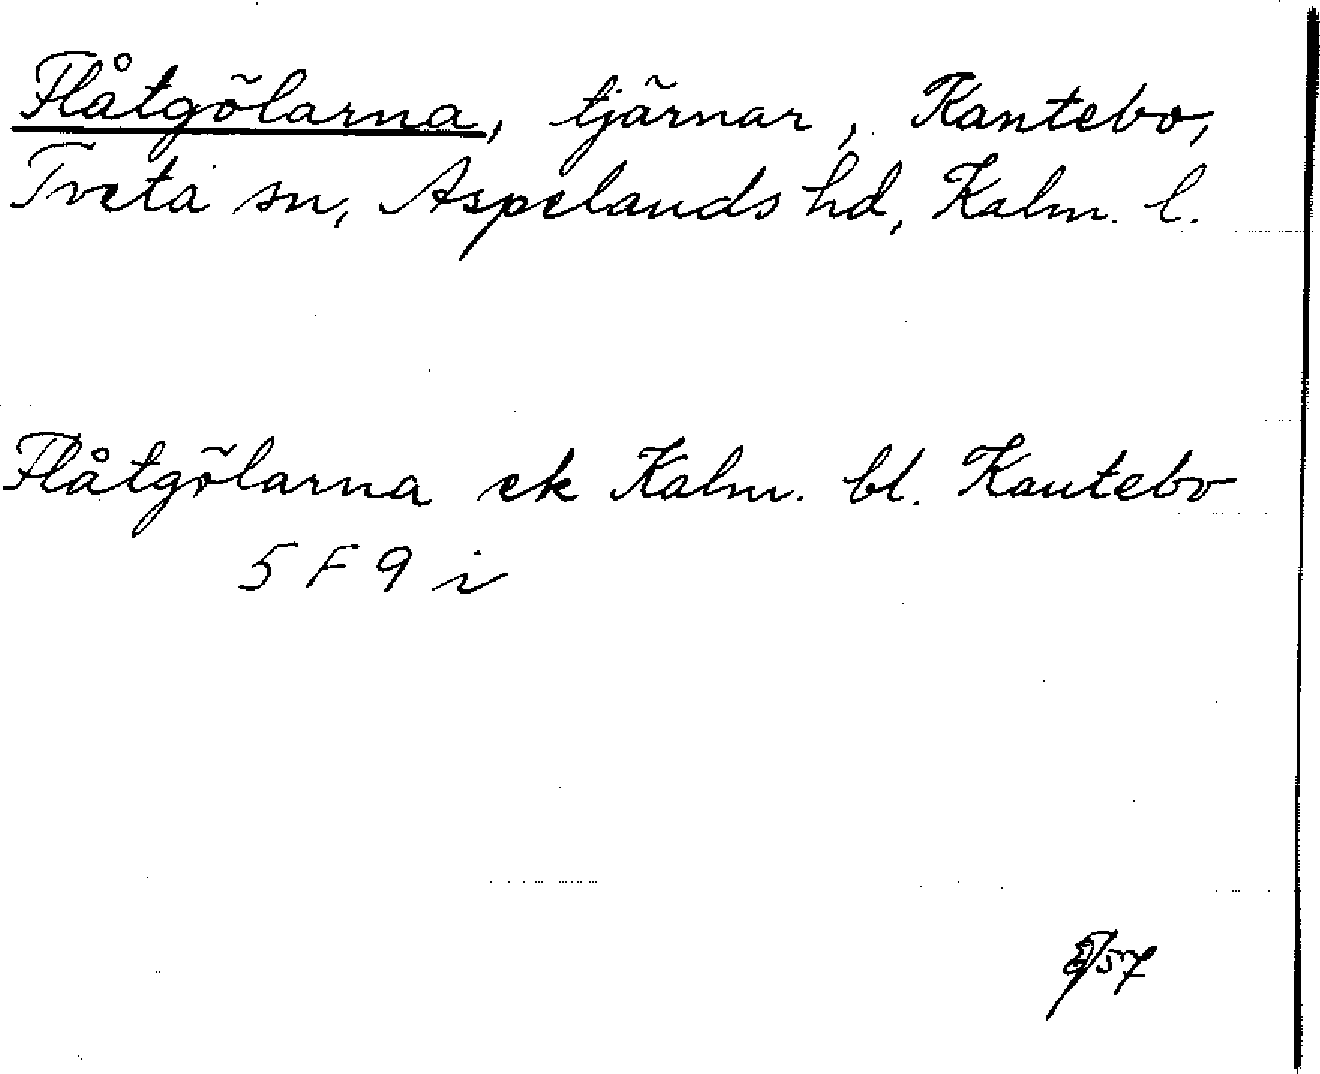 Flåtgölarna, tjärnar, Kantebo,
Tveta sn, Aspelands hd, Kalm. l.
Flåtgölarna ek Kalm. bl. Kantebo
5 F 9 i
/57